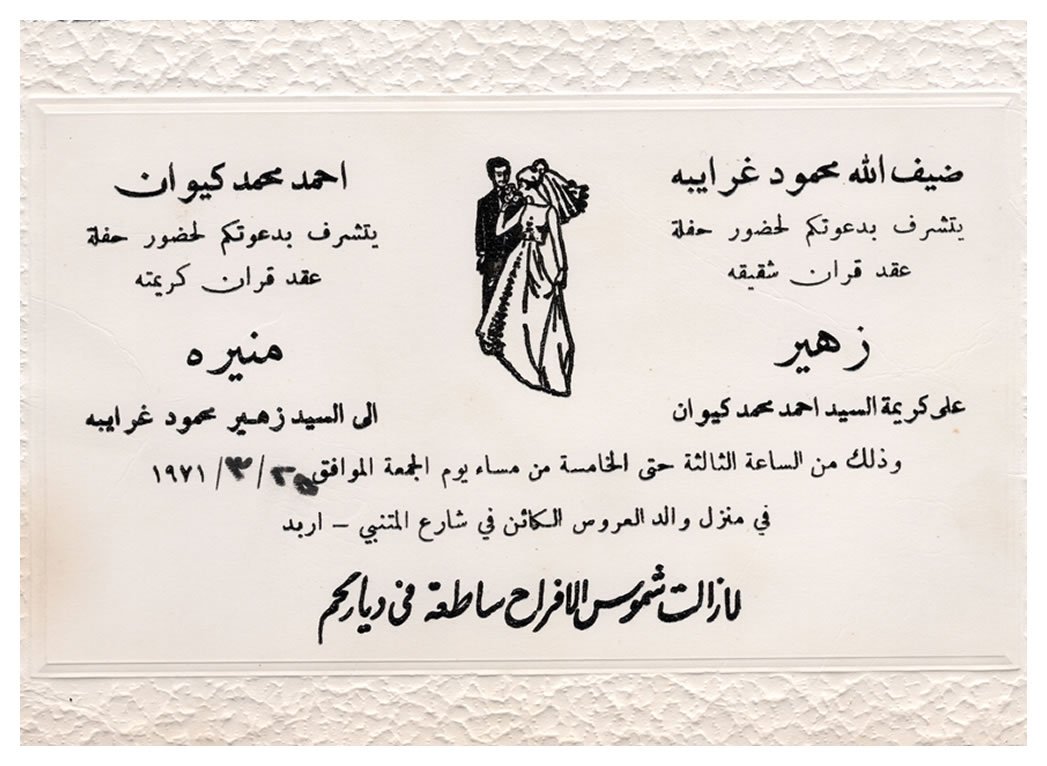 ضيف الله محمود غرايبه
يتشرف بدعوتكم لحضور حفلة
عقد قران شقيقه
زهير
على كريمة السيد احمد محمد كيوان
احمد محمد كيوان
يتشرف بدعوتكم لحضور حفلة
عقد قران كريمته
منيره
الى السيد زهير محمود غرايبه
وذلك من الساعة الثالثة حتى الخامسة من مساء يوم الجمعة الموافق /٣/ ١٩٧١
في منزل والد العروس الكائن في شارع المتنبي – اربد
لازالت شموس الافراح ساطعة في دياركم